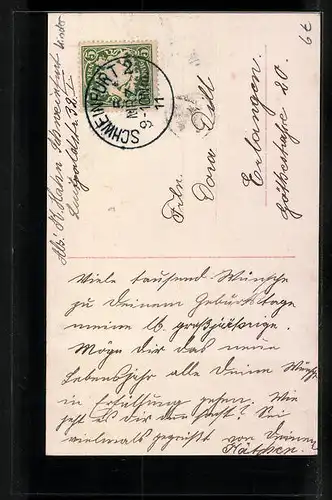 6€
SCHWEINFURT 2
8
MRZ
9-
11
5
5
Abs. K. Hahn Schweinfurt
Luitpoldstr. 38 I
Frln.
Dora Dill
Erlangen.
Göthestraße 20.
Viele tausend Wünsche
zu Deinem Geburtstage
meine lb. großjährige.
Möge Dir das neue
Lebensjahr alle Deine Wünsche
in Erfüllung gehen. Wie
geht es Dir denn sonst? Sei
vielmals gegrüßt von Deinem
Käthchen.